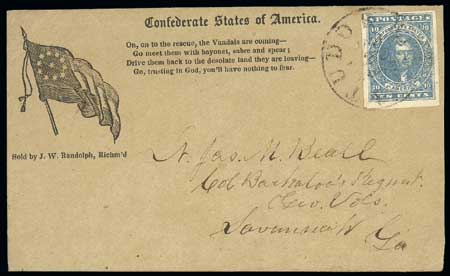 Confederate States of America.
On, on to the rescue, the Vandals are coming—
Go meet them with bayonet, sabre and spear;
Drive them back to the desolate land they are leaving—
Go, trusting in God, you'll have nothing to fear.
POSTAGE
10 10
10 10
TEN CENTS
Sold by J. W. Randolph, Richm'd
Jas. M. Beall
Col Regmt.
Geo. Vols.
Savannah
Ga